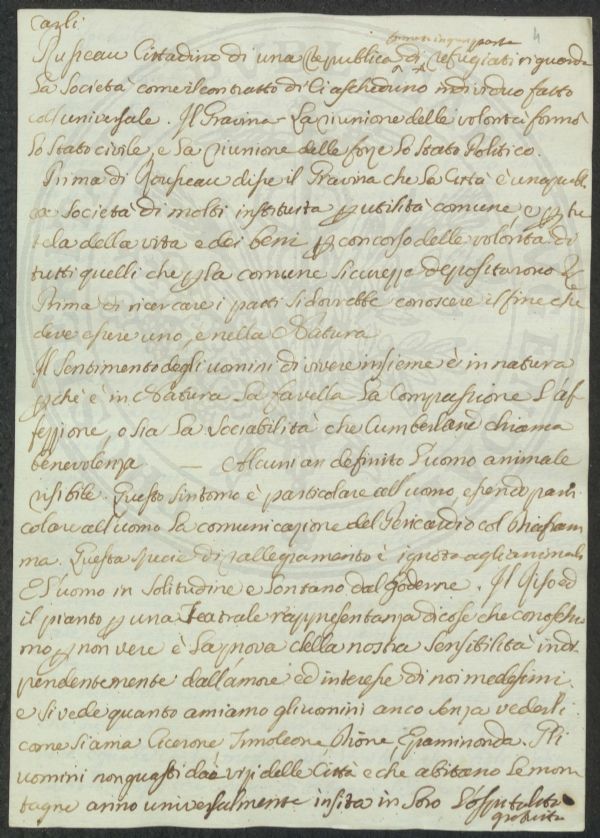 Carli
Rousseau Cittadino di una Republica di refugiati riguarda
La Società come il contratto di ciascheduno individuo fatto
coll'universale. Il Gravina La riunione delle volontà formò
lo stato civile, e La riunione delle forze lo stato Politico.
Prima di Rousseau disse il Gravina che La Città è una publi
ca Società di molti instituita p utilità comune e p tu
tela della vita e dei beni p concorso delle volontà di
tutti quelli che p la comune sicurezza depositarono
Prima di ricercare i patti si dovrebbe conoscere il fine che
deve essere uno, e nella Natura
Il Sentimento degli uomini di vivere insieme è in natura
pchè è in Natura La favella La Compassione L'af
fezzione, o sia La Sociabilità che Cumberland chiama
benevolenza — Alcuni an definito L'uomo animale
risibile. Questo sintomo è particolare all'uomo, essendo parti
colare all'uomo La comunicazione del Pericardio col Diafram
ma. Questa specie di rallegramento è ignota agli animali
E L'uomo in Solitudine e Lontano dal goderne. Il Riso ed
il pianto p una Teatrale rappresentanza di cose che conoschia
mo p non vere è La prova della nostra Sensibilità indi
pendentemente dall'amore ed interesse di noi medesimi
e si vede quanto amiamo gli uomini anco senza vederli
come si ama Cicerone Timoleone Dione, Epaminonda. Gli
uomini non guasti dai vizi delle Città e che abitano Le mon
tagne anno universalmente insita in Loro L'ospitalità
gratuita